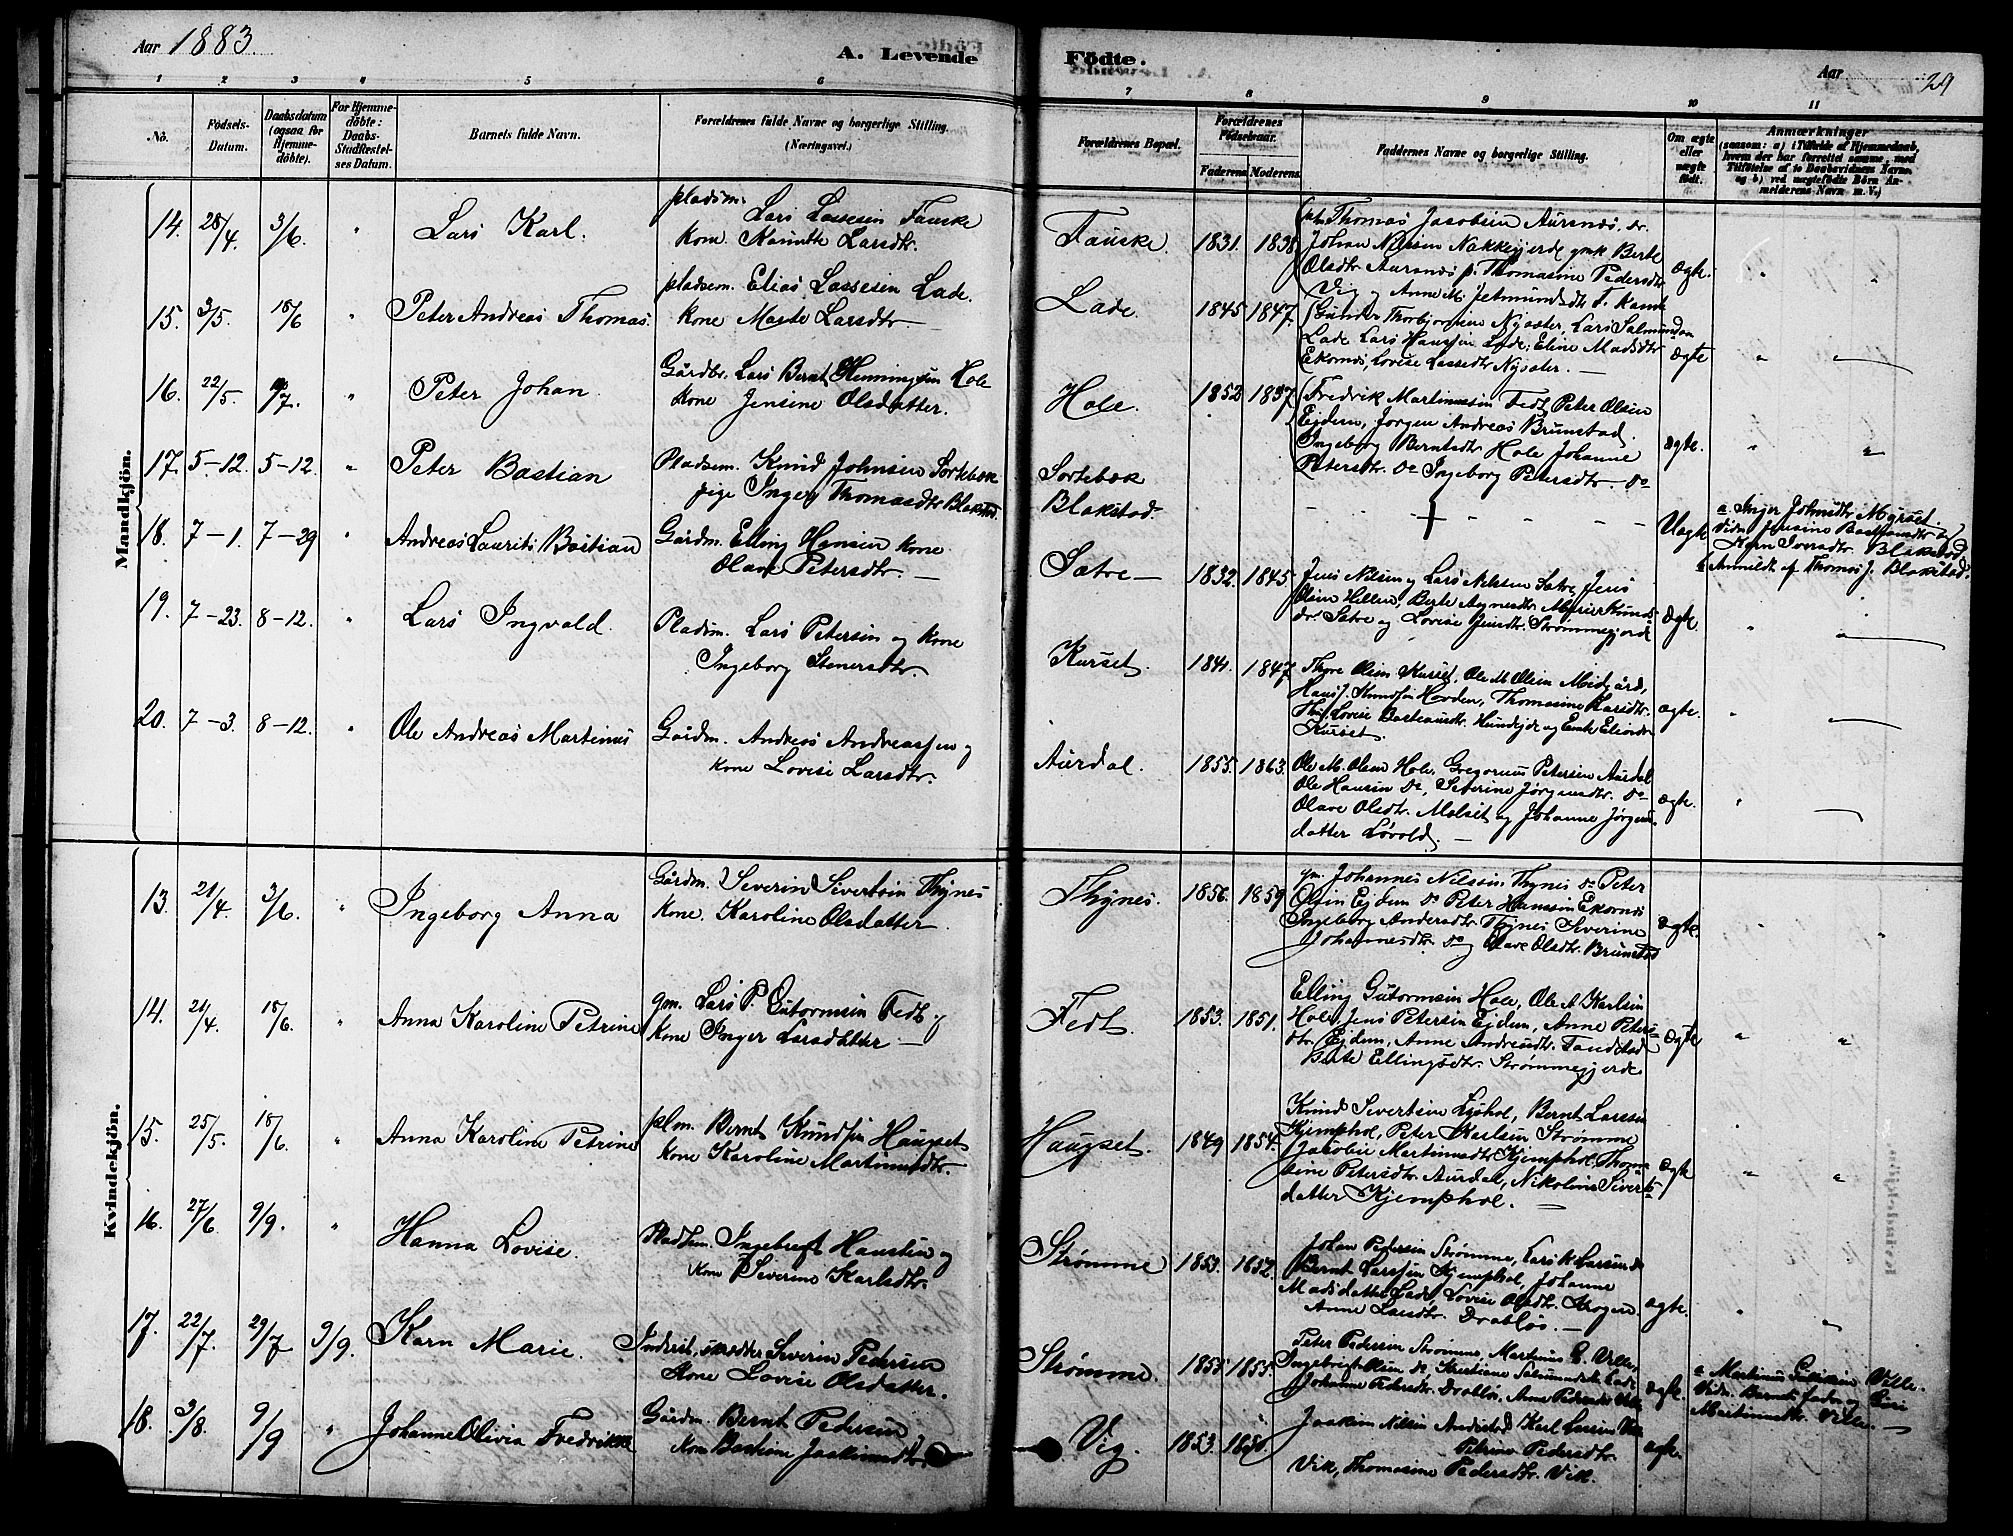 Aar 1883.
A. Levende
Födte.
Aar
29
1 2 3 4 5 6
7 8 9 10 11
No.
Födsels-
Datum.
Daabsdatum
(ogsaa for
Hjemme-
döbte).
For Hjemme-
döbte:
Daabs-
Stadfæstel-
ses Datum.
Barnets fulde Navn.
Forældrenes fulde Navne og borgerlige Stilling.
(Næringsvei.)
Forældrenes Bopæl.
Forældrenes
Födselsaar.
Faderens. Moderens.
Faddernes Navne og borgerlige Stilling.
Om ægte
eller
uægte
födt.
Anmærkninger
(saasom: a) i Tilfælde af Hjemmedaab,
hvem der har forrettet samme, med
Tilföielse af to Daabsvidners Navne,
og b) ved uægtefödte Börn An-
melderens Navn m. V.)
Mandkjön.
14. 28/4. 3/6. " Lars Karl.
pladsm. Lars Lassesen Fauske
kone Larsdtr.
Fauske. 1831. 1838
Thomas Jacobsen Aursnes,
Johan Nilssen Nakkegjerde gmk Berte
Olsdtr Aursnes p. Thomasine Pedersdtr
Vig og Anne M.
ægte. " "
15. 3/5. 18/6 " Peter Andreas Thomas.
pladsem. Elias Lassesen Lade.
kone Marte Larsdtr.
Lade. 1845 1847
Gunder Thorbjørnsen Nysæter, Lars Salmundsen
Lade Lars Hanssen Lade; Eline Madsdtr
Ekornes, Lovise Lassedtr Nysæter.
ægte " "
16. 22/5. /7. " Peter Johan.
Gårdbr. Lars Bernt Henningsen Hole
kone Jensine Olsdatter.
Hole. 1852 1857
Fredrik Martinussen Fedt, Peter Olsen
Ejdem, Jørgen Andreas Brunstad.
Ingeborg Berntsdtr Hole Johanne
Petersdtr. do Ingeborg Petersdtr. do
ægte. " "
17. 5-12. 5-12. " Peter Bastian
Pladsem. Knud Johnsen Sortebæk
pige Inger Thomasdtr Blakstad.
Sortebæk
Blakstad.
Uægte
a. Inger Johnsdtr Myrset
Vidn. Jensine Bastiansdtr og
Karn Iversdtr. Blakstad
b Anmeldt af Thomas J. Blakstad.
18. 7-1. 7-29 " Andreas Laurits Bastian
Gårdm. Elling Hansen kone
Olave Petersdtr.
Sætre 1832. 1845.
Jens Nilsen og Lars Nilssen Sætre, Jens
Olsen Hellen, Berte Aagnesdtr Knuds
dr. Sætre og Lovise Jensdtr. Strømmegjerde
ægte. " "
19. 7-23. 8-12. " Lars Ingvald.
Pladsm. Lars Petersen og kone
Ingeborg Stenersdtr.
Kurset. 1841. 1847
Thore Olsen Kurset. Ole M Olsen Midgård,
Hans J. Knudsen Hovden, Thomasine Larsdtr.
Lovise Bastiansdtr. Hundejde og
Kurset.
ægte. " "
20. 7-3. 8-12. " Ole Andreas Martinus
Gårdm. Andreas Andreassen og
kone Lovise Larsdtr.
Aurdal. 1855. 1863.
Ole M. Olsen Hole. Gregorius Petersen Aurdal
Ole Hansen do, Severine Jørgensdtr. do
Olave Olsdtr. Molset og Johanne Jørgens-
datter Løvold.
ægte. " "
Kvindekjön.
13. 21/4. 3/6. " Ingeborg Anna
Gårdm. Severin Sivertsen Thynes
kone. Karoline Olsdatter.
Thynes. 1856. 1859
gm. Johannes Nilssen Thynes do Peter
Olsen Ejdem do Peter Hanssen Ekornes
Ingeborg Andersdtr. Thynes Severine
Johannesdtr. do og Olave Olsdtr. Brunstad
ægte. " "
14. 21/4. 18/6. " Anna Karoline Petrine
gm. Lars P. Gutormsen Fedt og
kone Inger Larsdatter.
Fedt. 1853. 1851.
Elling Gutormsen Hole, Ole A Karlsen
Hole Jens Petersen Ejdem, Anne Peters-
dtr. Ejdem, Anne Andreasdtr. Tandstad
Berte Ellingsdtr. Strømmegjerde.
ægte " "
15. 25/5. 18/6. " Anna Karoline Petrine
plm. Bernt Knudsen Haugset
kone Karoline Martinusdtr.
Haugset. 1849 1854.
Knud Sivertsen Ljshol, Bernt Larssen
Kjemphol, Peter Karlsen Strømme
Jacobie Martinusdtr. Kjemphol, Thoma-
sine Petersdtr. Aurdal, Nikoline Siverts-
datter Kjemphol.
ægte " "
16. 27/6. 9/9. " Hanna Lovise.
Pladsem. Ingebregt Hanssen og
kone Severine Karlsdtr.
Strømme 1853. 1852.
Johan Pedersen Strømme, Lars K Larssen do
Bernt Larssen Kjemphol, Johanne
Madsdatter Lade, Lovise Olsdtr. Krogen
Anne Larsdtr. Drabløs.
ægte. " "
17. 22/7. 29/7 9/9. Karn Marie.
Inderst, Severin Pedersen
Kone Lovise Olsdatter.
Strømme. 1855. 1855.
Peter Pedersen Strømme, Martinus Velle,
Ingebrigt Olsen do, Kristiane Salmundsdtr. Lade
Johanne Pedersdtr. Drabløs, Anne Pedersdtr Velle
ægte.
a Martinus Velle.
Vidn. Barnets fader og
Martinusdtr. Velle.
18. 3/8. 9/9 " Johanne Olivia Fredrikke
Gårdm. Bernt Pedersen
kone Bastiane Joakimsdtr.
Vig. 1853. 1850.
Joakim Nilsen Andestad Karl Larsen Vik
Petrine Pedersdtr.
Vik, Thomasine Pedersdtr. Vik.
ægte.